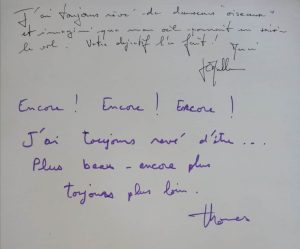 J'ai toujours rêvé de devenir oiseau
et imaginé que mon œil pourrait en saisir
le vol. Votre objectif l'a fait ! Merci
Encore ! Encore ! Encore !
J'ai toujours revé d'être...
Plus beau - encore plus
toujours plus loin.
Thomas